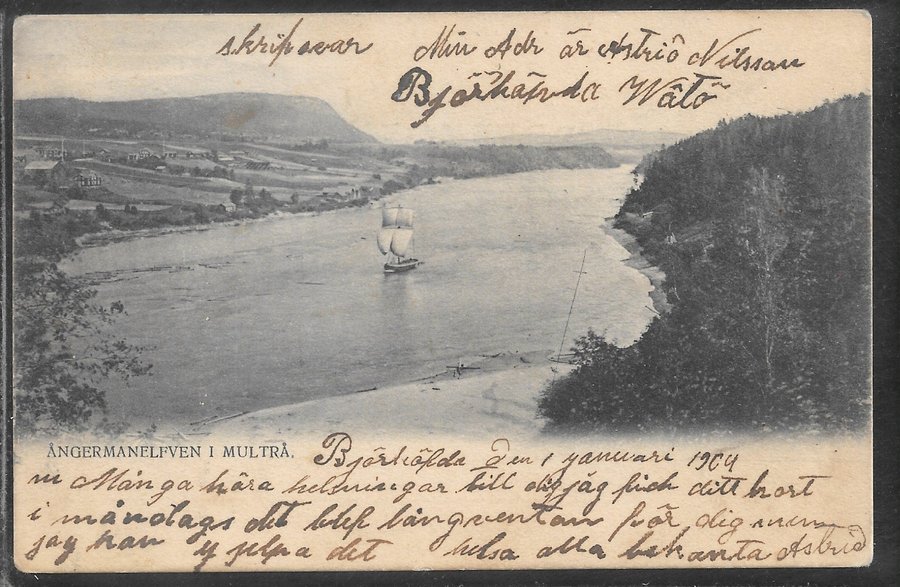 skrif svar
Min Adr är Astrid Nilsson
Wätö
ÅNGERMANELFVEN I MULTRÅ.
Den 1 yanuari 1904
m Många kära helsningar till dig jag fick ditt kort
i måndags det blef långventan för dig men
jag kan ej jelpa det helsa alla bekanta Astrid